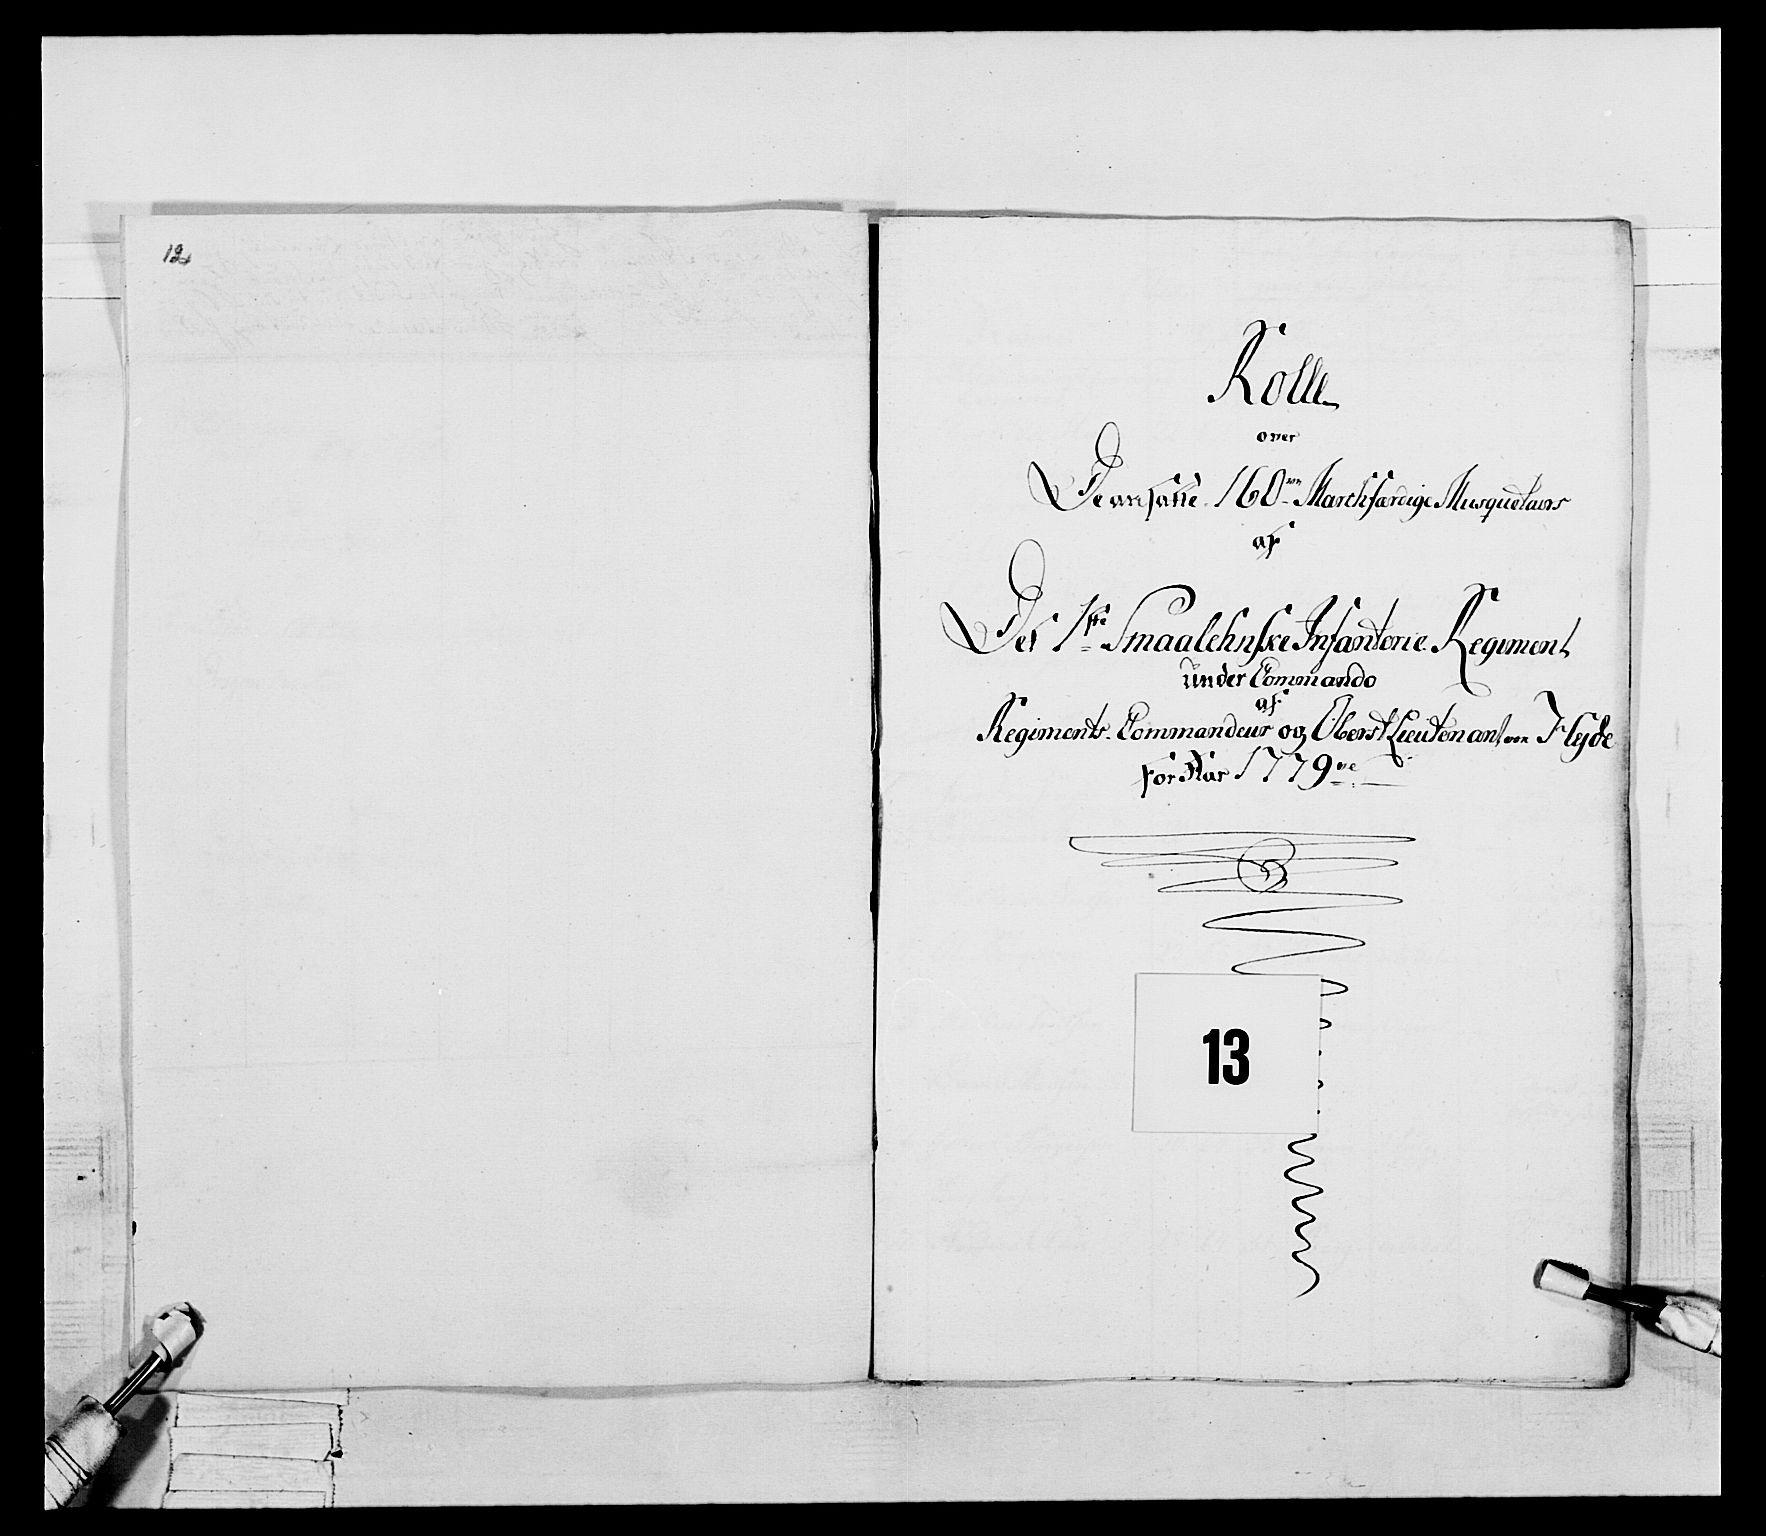 12
Rolle
over
De ansatte 160 Marchfærdige Musqueteurs
af
Det 1ste Smaalehnske Infanterie Regiment
under Commando
af
Regiments Commandeur og Oberst Lieutenant von Hejde
for Aar 1779
13